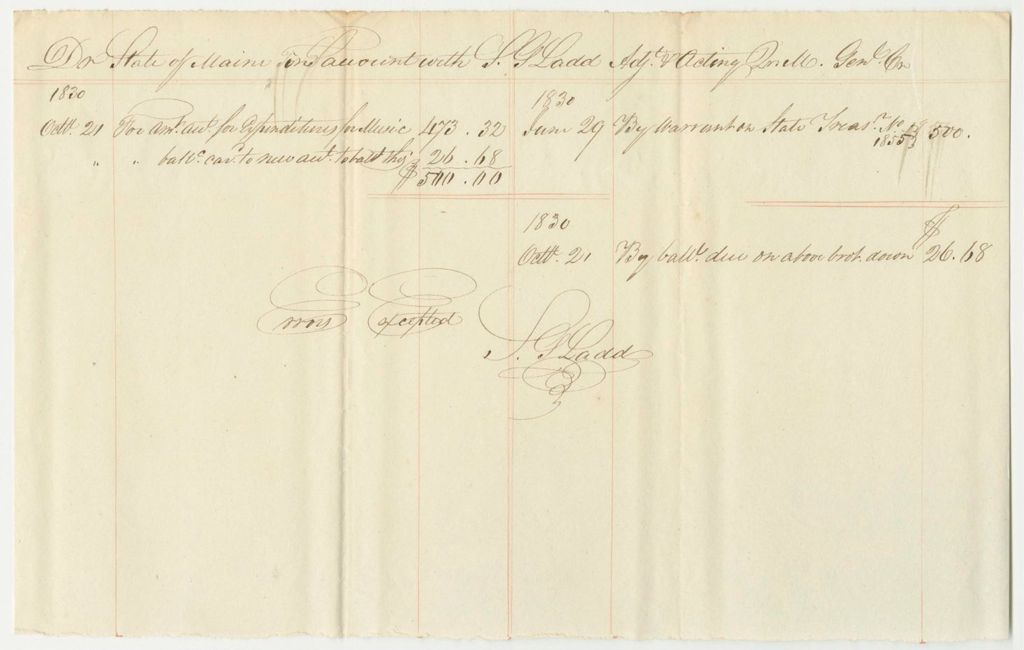 Dr State of Maine in account with S. G. Ladd Adjt. & Acting Qr. M. Genl. Cr
1830
Octr. 21 For amt. acct. for Expenditures for Music 473.32
" " ballc. card. to new acct. to ball this 26.68
$ 500.00
1830
June 29 By Warrant on State Treasr. No 1855 $ 500.
1830
Octr. 21 By ballc. due on above brot. down $ 26.68
Errors Excepted
S. G. Ladd